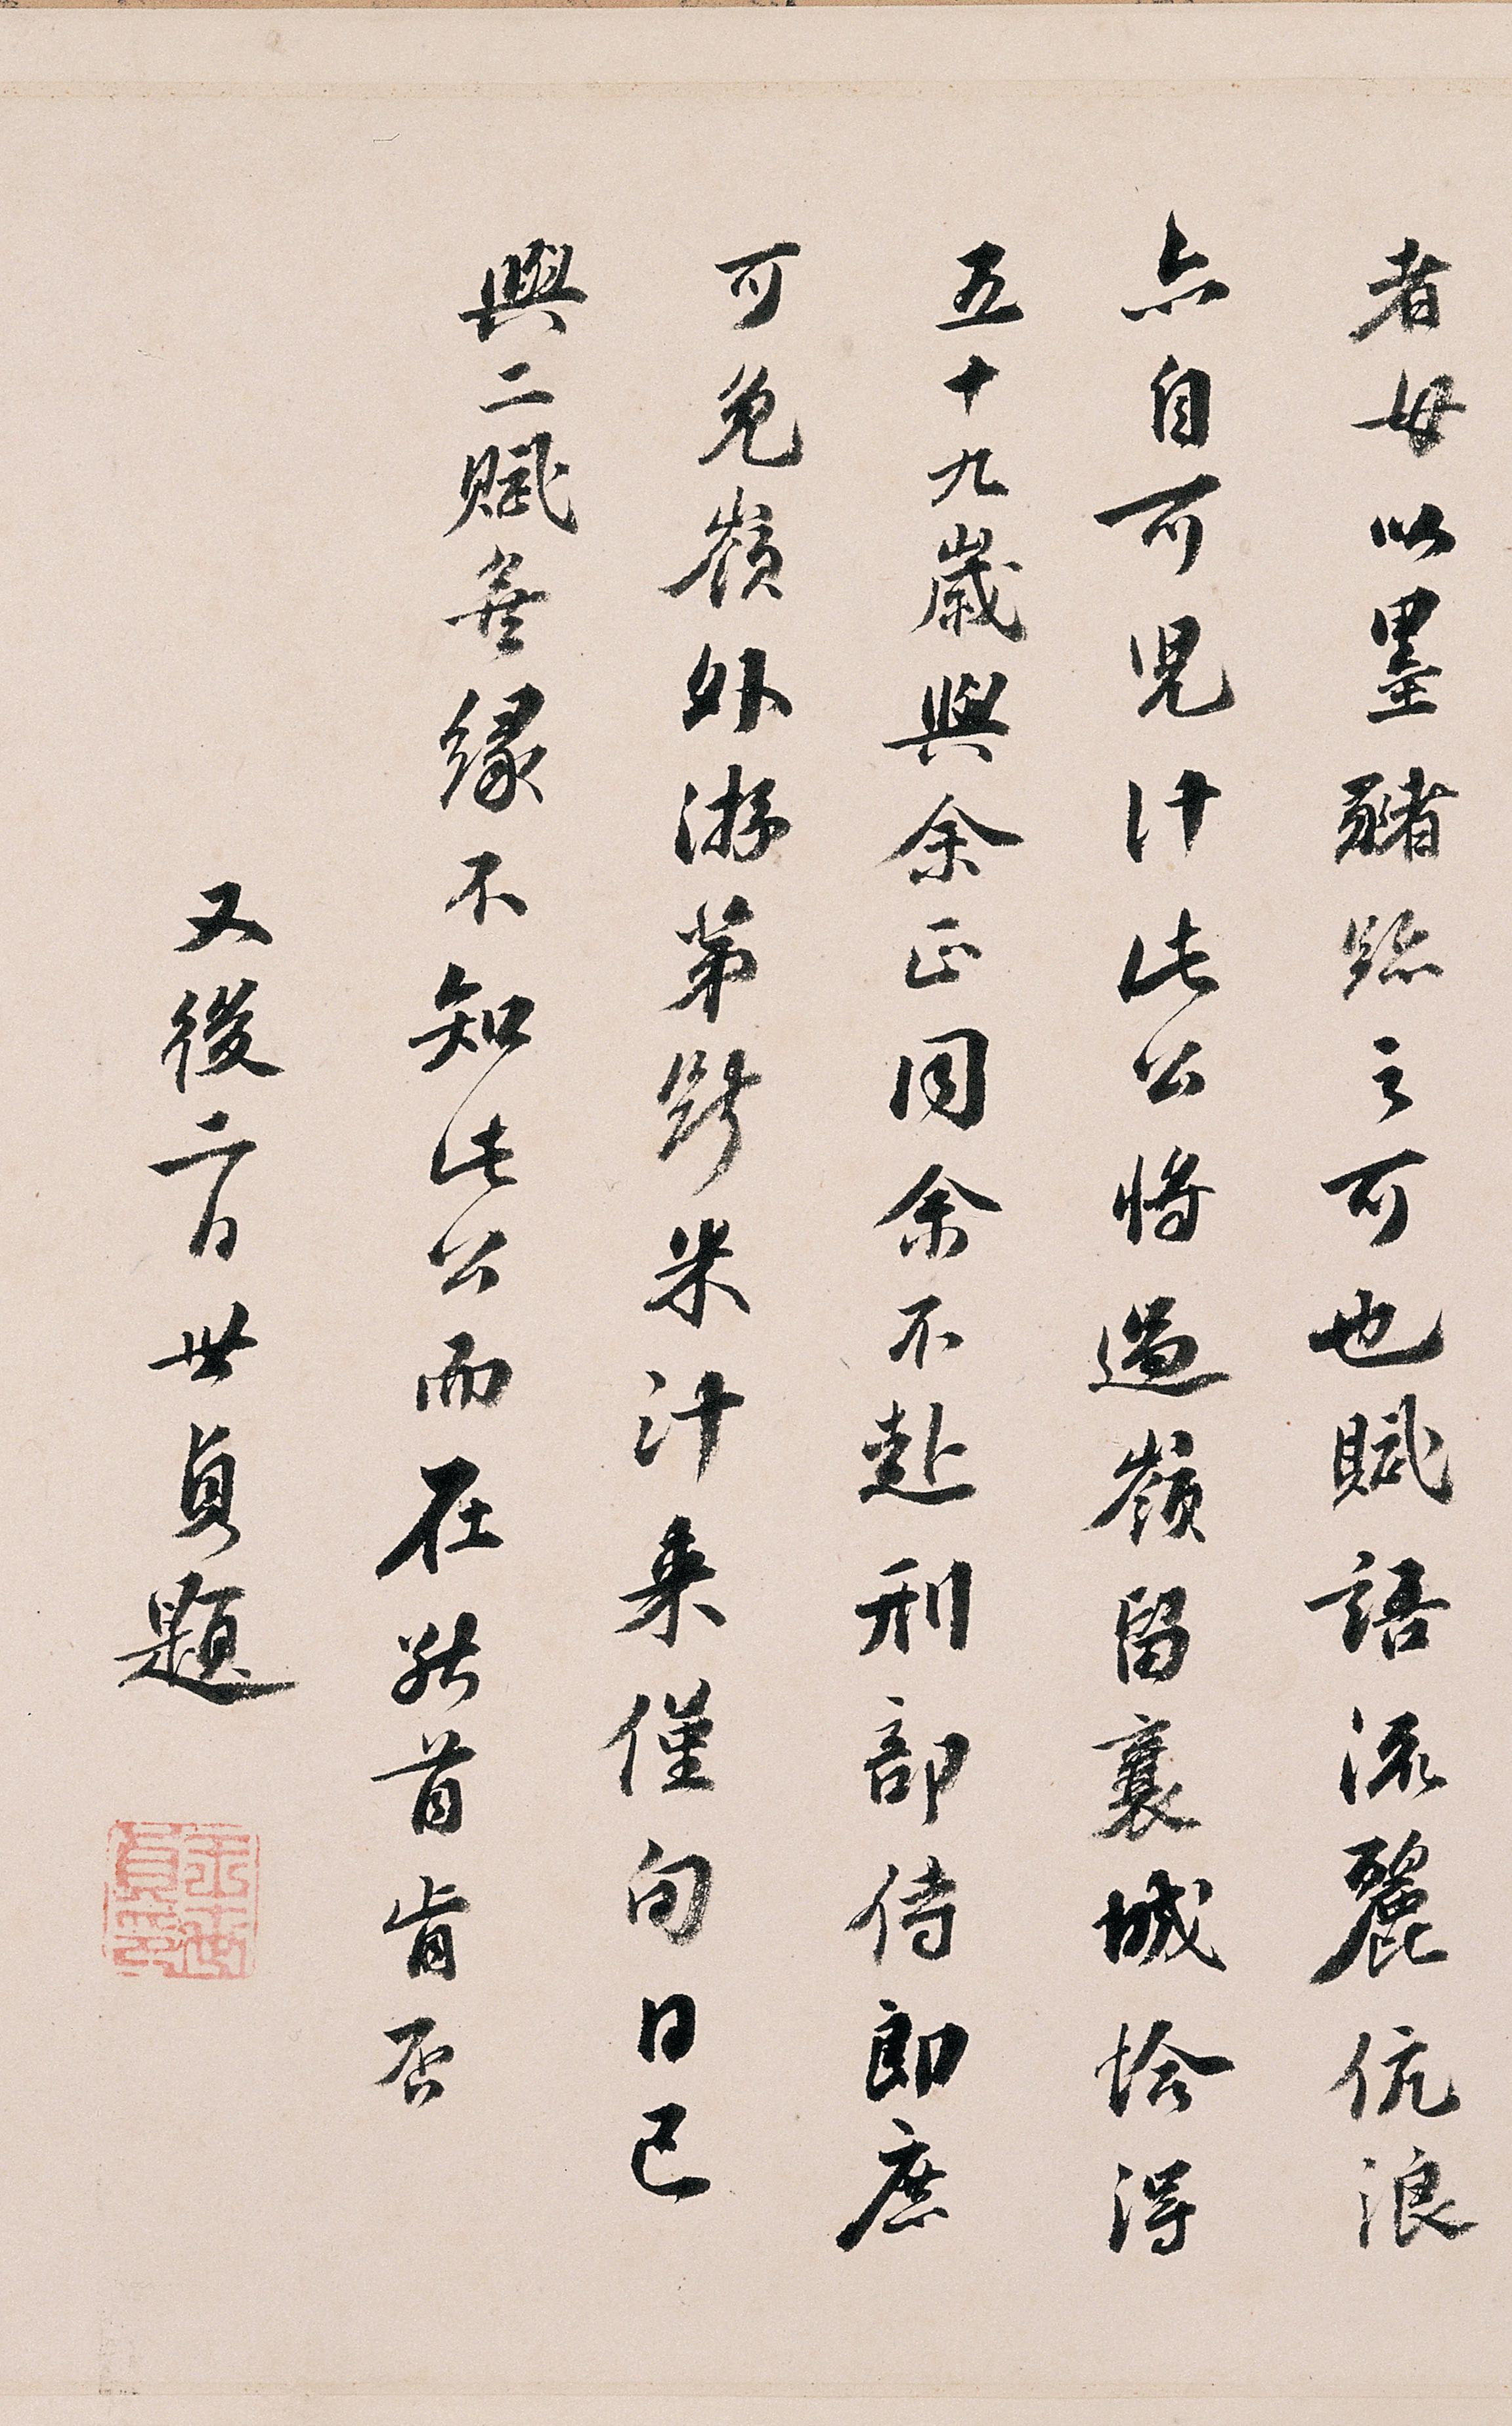 者毋以墨豬跡之可也賦語流麗伉浪
亦自可児计此公将過嶺留襄城恰得
五十九歲與余正同余不赴刑部侍郎庶
可免嶺外游第斷米汁来僅旬日已
與二賦無緣不知此公而在能首肯否
又後二日世貞題
王世貞印